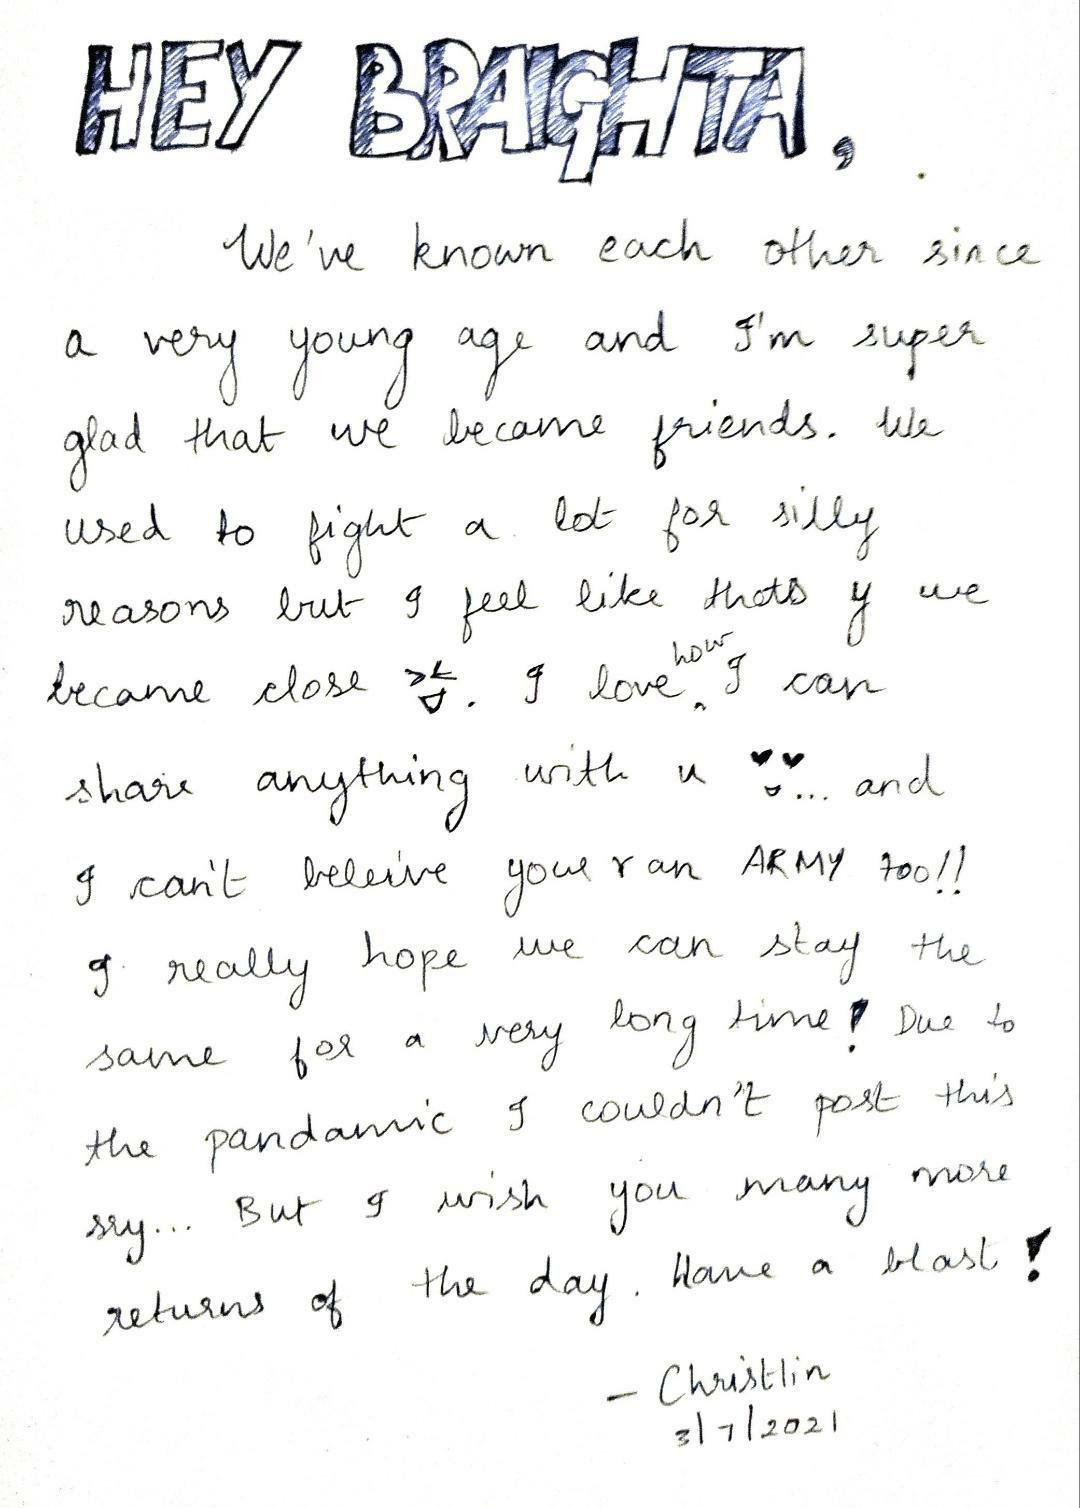 HEY BRAIGHTA,
We've known each other since
a very young age and I'm super
glad that we became friends. We
used to fight a lot for silly
reasons but I feel like thats y we
became close >< . I love how I can
share anything with u ♥♥... and
I can't beleive your an ARMY too!!
I really hope we can stay the
same for a very long time! Due to
the pandamic I couldn't post this
sry... But I wish you many more
returns of the day. Have a blast!
- Christlin
3/7/2021